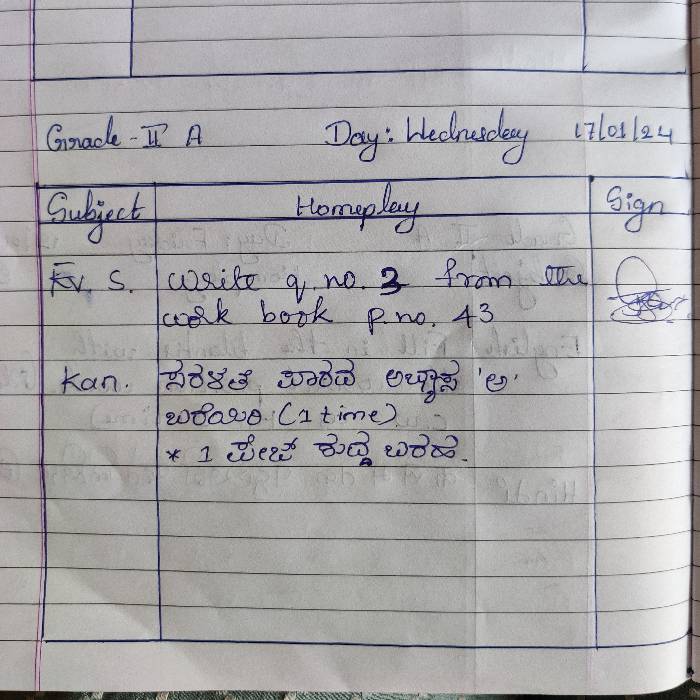 Grade - II A Day: Wednesday 17/01/24
Subject Homeplay Sign
Ev. S. Write q. no. 3 from the
work book p.no. 43
Kan. ಸರಳತೆ ಪಾಠದ ಅಭ್ಯಾಸ 'ಅ'
ಬರೆಯಿರಿ. (1 time)
* 1 ಪೇಜ್ ಶುದ್ಧ ಬರಹ.